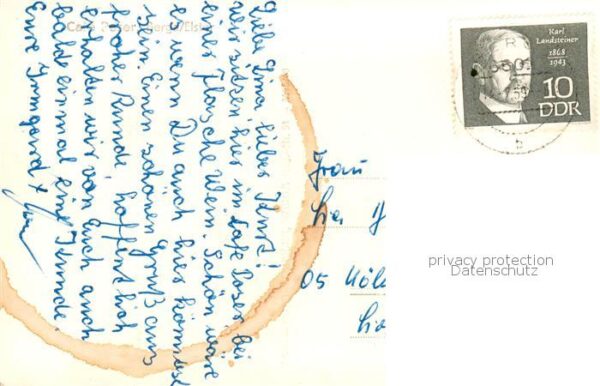 Liebe Irma, lieber Horst!
Wir sitzen hier im Cafe Poser bei
einer Flasche Wein. Schön wäre
es wenn Du auch hier könntest
sein. Einen schönen Gruß aus
froher Runde, hoffentlich
erhalten wir von Euch auch
balde einmal eine Kunde.
Eure Irmgard +
Frau
05 Köl
Karl
Landsteiner
1868
1943
10
DDR
privacy protection
Datenschutz